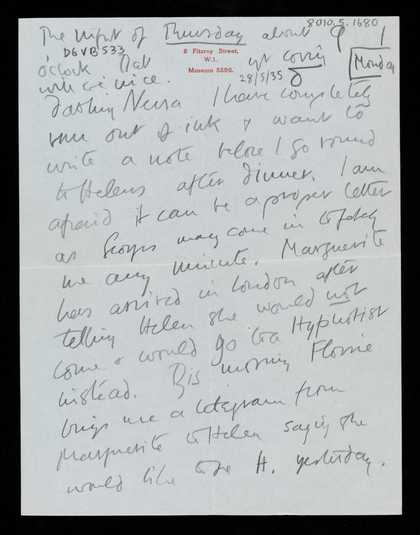 The night of Thursday about 9
8010.5.1680
DGVB 533
8 Fitzroy Street,
W.1.
Museum 5590.
28/5/35
Monday
o'clock that
wld be nice.
Darling Nessa I have completely
run out of ink & want to
write a note before I go round
to Helens after dinner. I am
afraid it can be a proper letter
as Georges may come in to fetch
me any minute. Marguerite
has arrived in London after
telling Helen she would not
come & would go to a Hypnotist
instead. This morning Flossie
brings me a telegram from
Marguerite to Helen saying she
would like to see H. yesterday.